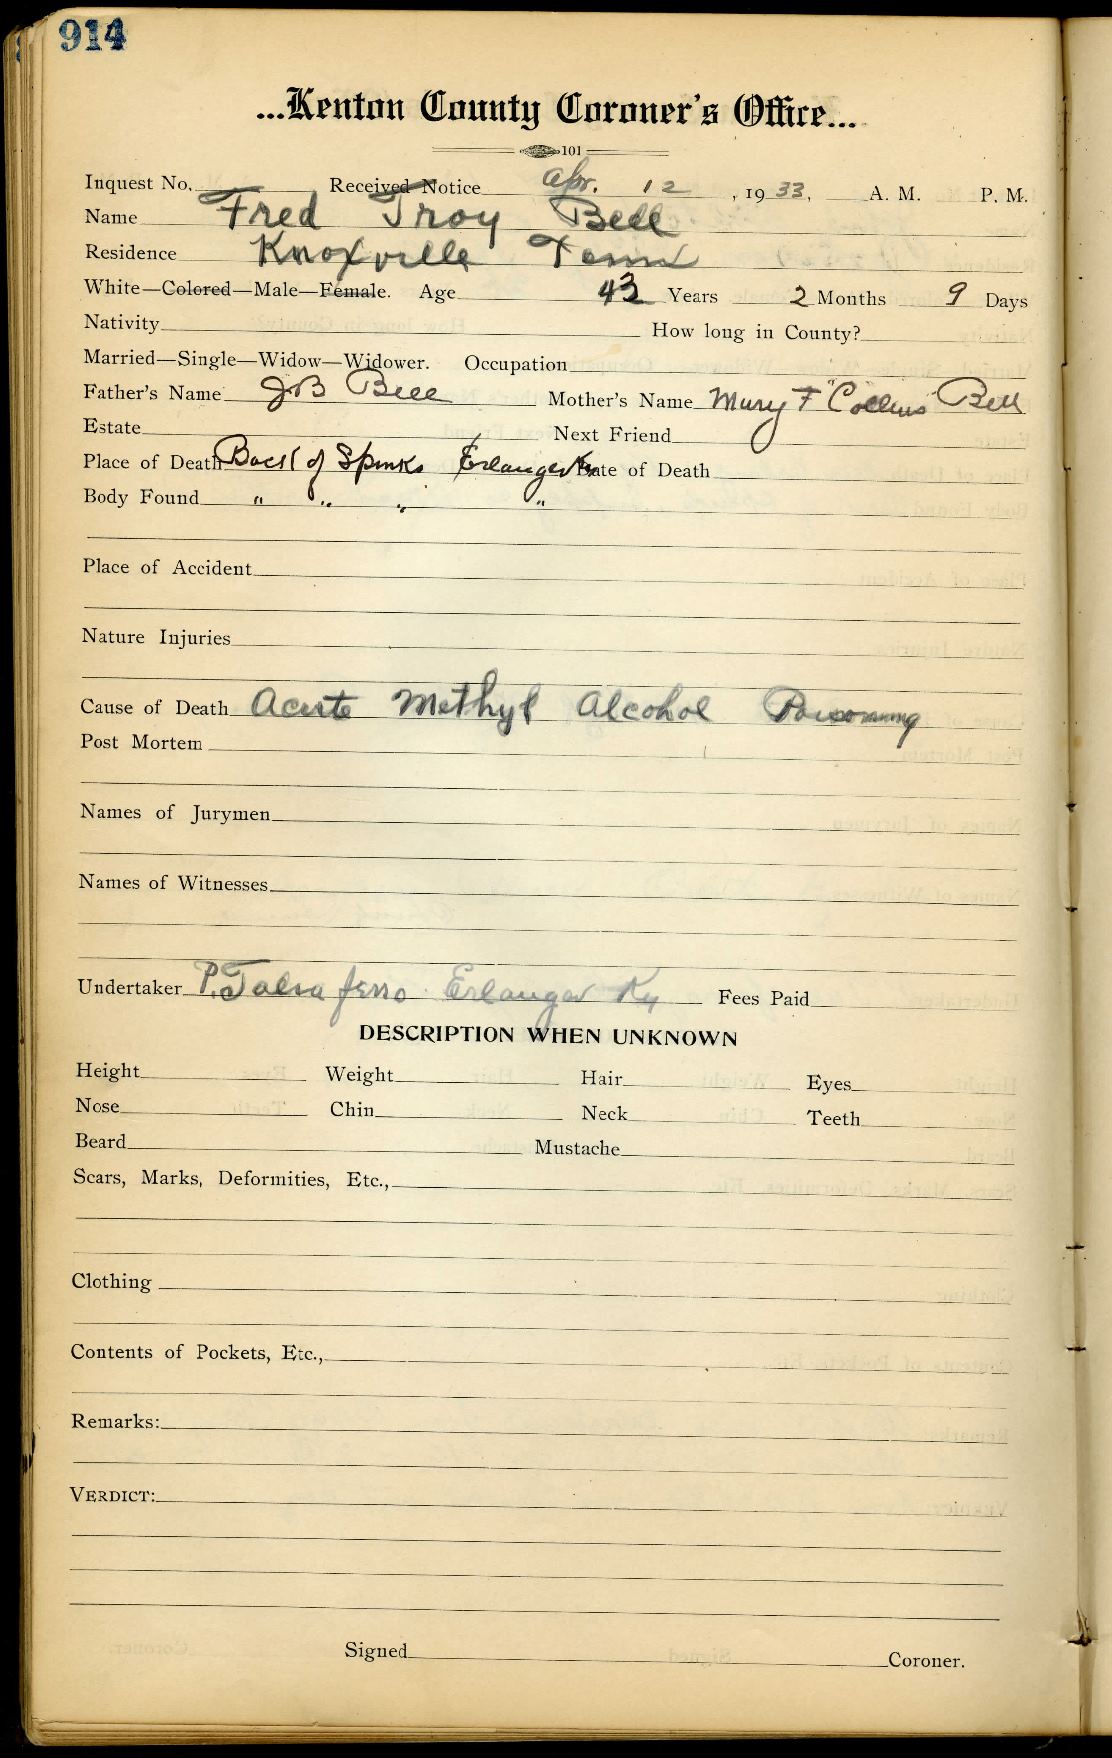 914
...Kenton County Coroner's Office...
101
Inquest No. Received Notice Apr. 12, 1933, A. M. P. M.
Name Fred Troy Bell
Residence Knoxville Tenn
White—Colored—Male—Female. Age 43 Years 2 Months 9 Days
Nativity How long in County?
Married—Single—Widow—Widower. Occupation
Father's Name JB Bell Mother's Name Mary F "Collins" Bell
Estate Next Friend
Place of Death Back of Spinks Erlanger Ky Date of Death
Body Found " " " "
Place of Accident
Nature Injuries
Cause of Death Acute Methyl Alcohol Poisoning
Post Mortem
Names of Jurymen
Names of Witnesses
Undertaker P. Taliaferro Erlanger Ky Fees Paid
DESCRIPTION WHEN UNKNOWN
Height Weight Hair Eyes
Nose Chin Neck Teeth
Beard Mustache
Scars, Marks, Deformities, Etc.,
Clothing
Contents of Pockets, Etc.,
Remarks:
VERDICT:
Signed Coroner.